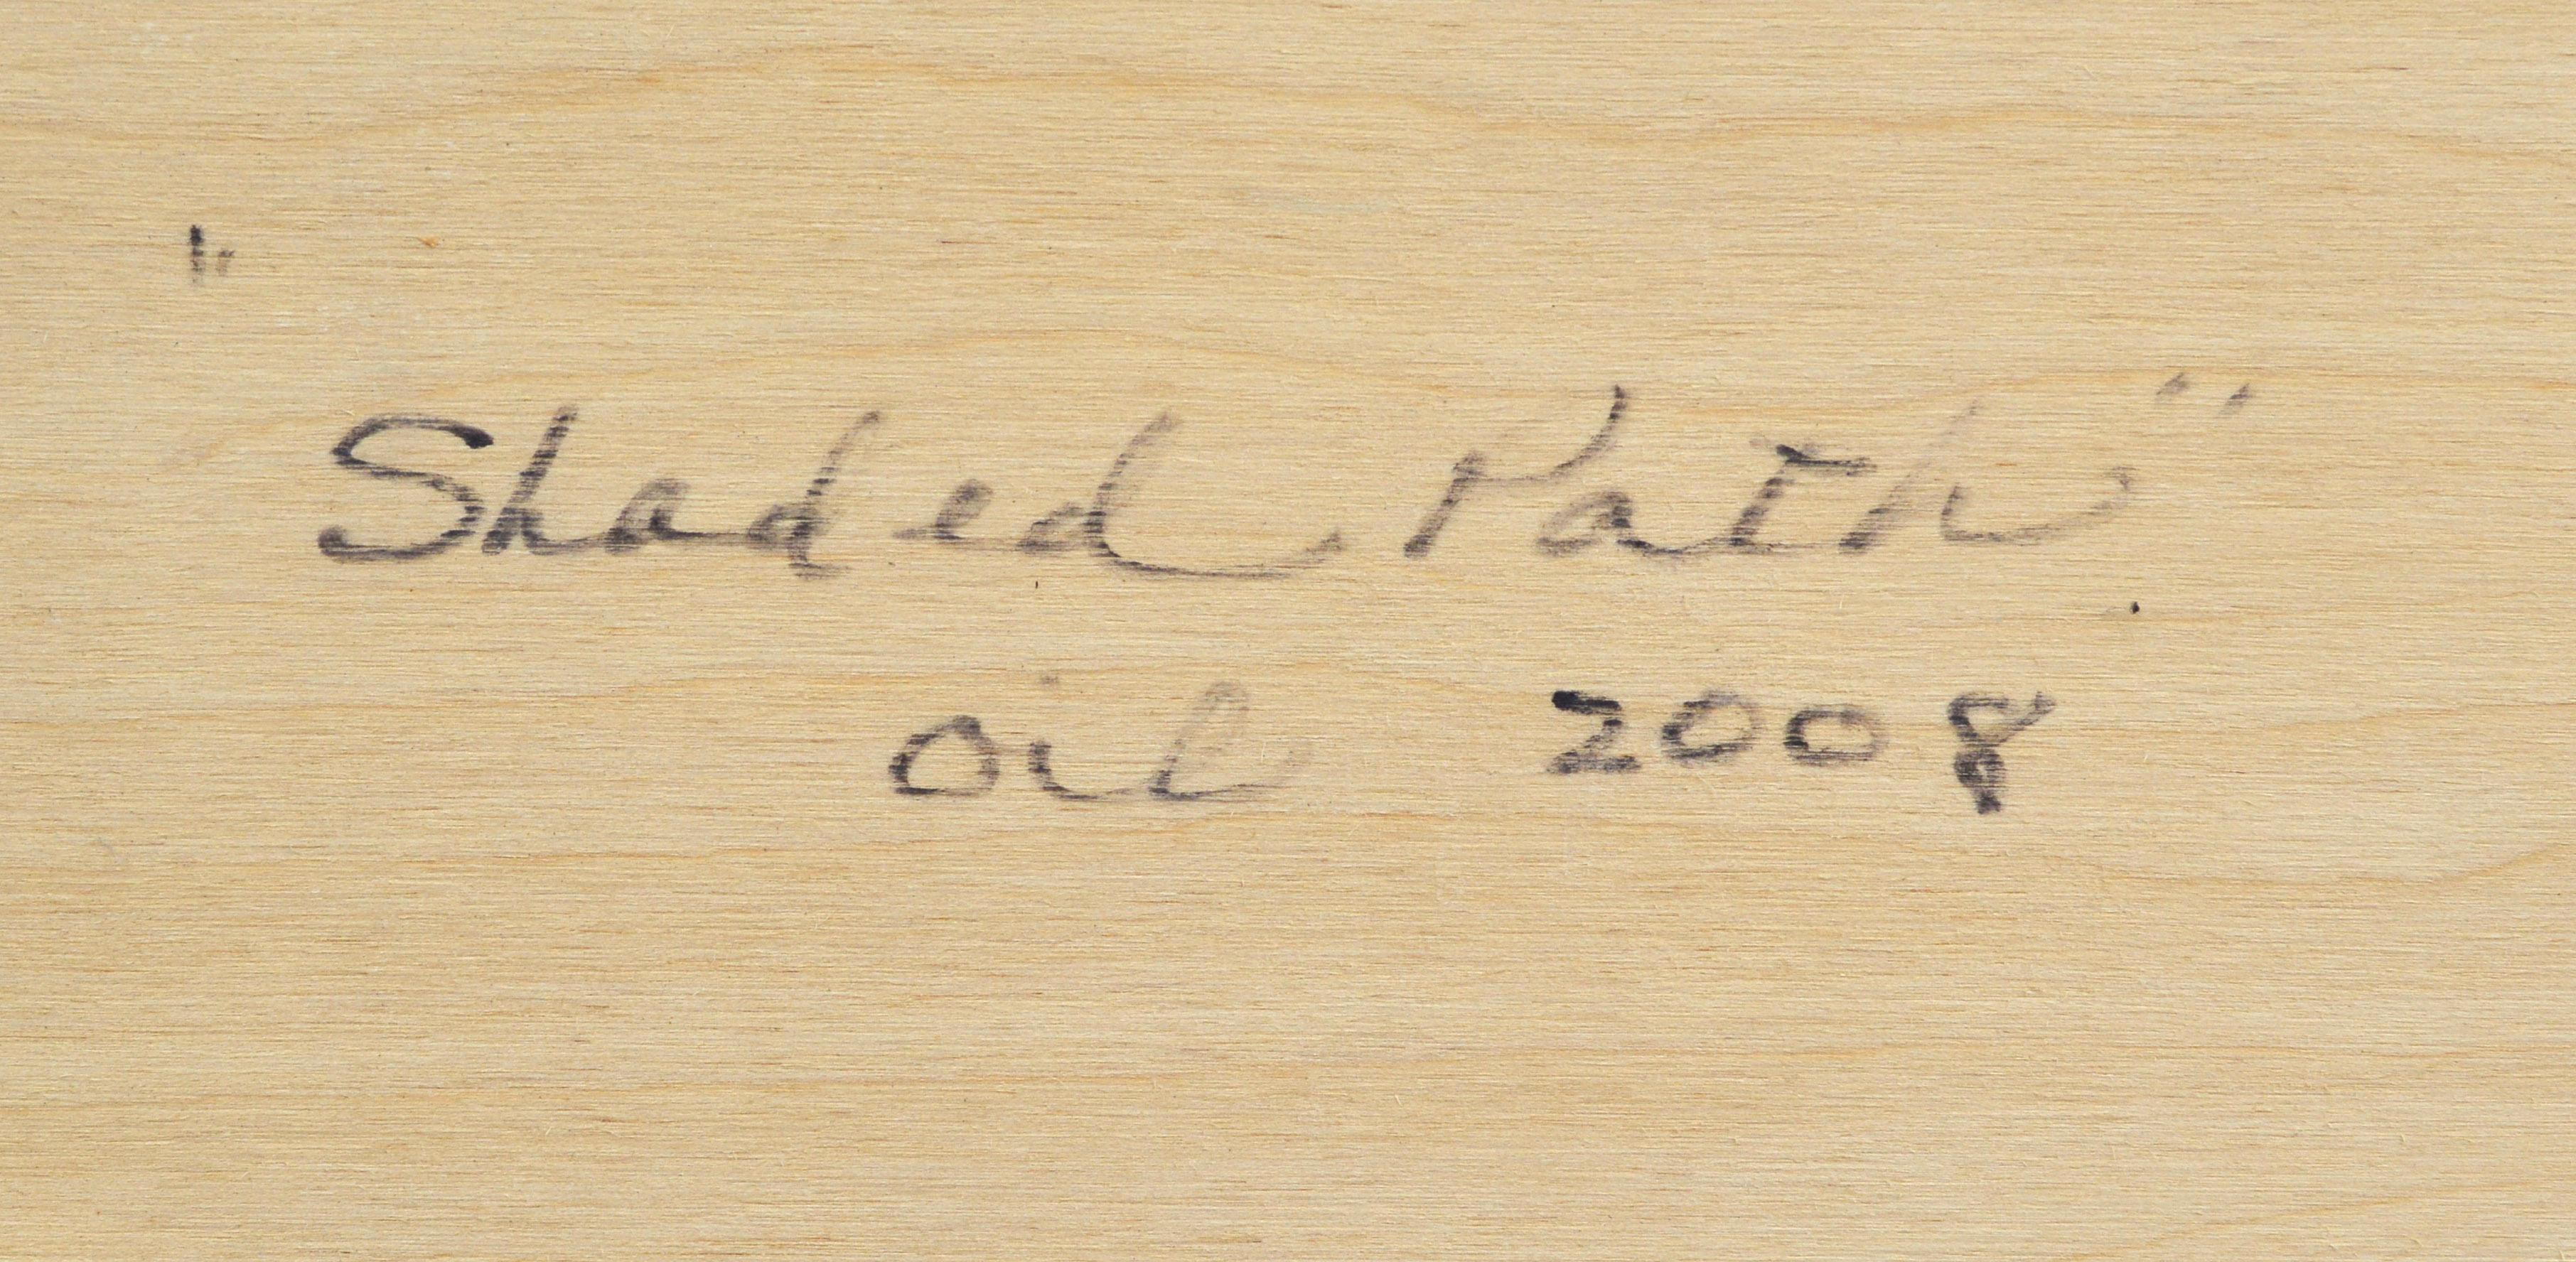 "Shaded Path"
oil 2008